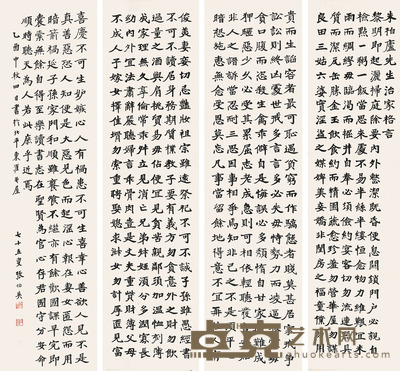 朱柏盧先生治家格言
黎明即起灑掃庭除要內外整潔既昏便息關鎖門戶必親自
檢點一粥一飯當思來處不易半絲半縷恆念物力維艱宜未
雨而綢繆毋臨渴而掘井自奉必須儉約宴客切勿流連器具
質而潔瓦缶勝金玉飲食約而精園蔬愈珍饈勿營華屋勿謀
良田三姑六婆實淫盜之媒婢美妾嬌非閨房之福童僕勿用
貴而生諂容者最可恥遇貧窮而作驕態者賤莫甚居家戒爭
訟訟則終凶處世戒多言言多必失勿恃勢力而凌逼孤寡毋貪
口腹而恣殺生禽乖僻自是悔誤必多頹惰自甘家道難成
狎昵惡少久必受其累屈志老成急則可相依輕聽發言安知
非人之譖訴當忍耐三思因事相爭焉知非我之不是須平心
暗想施惠無念受恩莫忘凡事當留餘地得意不宜再往人有
俊美妻妾切忌豔妝祖宗雖遠祭祀不可不誠子孫雖愚經書
不可不讀居身務期質樸教子要有義方勿貪意外之財勿飲
過量之酒與肩挑貿易毋占便宜見貧苦親鄰須加溫恤刻薄
成家理無久享倫常乖舛立見消亡兄弟叔姪須分多潤寡長
幼內外宜法肅辭嚴聽婦言乖骨肉豈是丈夫重資財薄父母
不成人子嫁女擇佳婿勿索重聘娶媳求淑女勿計厚奩見富
喜慶不可生妒嫉心人有禍患不可生喜幸心善欲人見不是
真善惡恐人知便是大惡見色而起淫心報在妻女匿怨而用
暗箭禍延子孫家門和順雖饔飧不繼亦有餘歡國課早完即
囊橐無餘自得至樂讀書志在聖賢為官心存君國守分安命
順時聽天為人若此庶乎近焉
乙酉中秋四日書於北平東
七十五叟張伯英
卓克艺术网